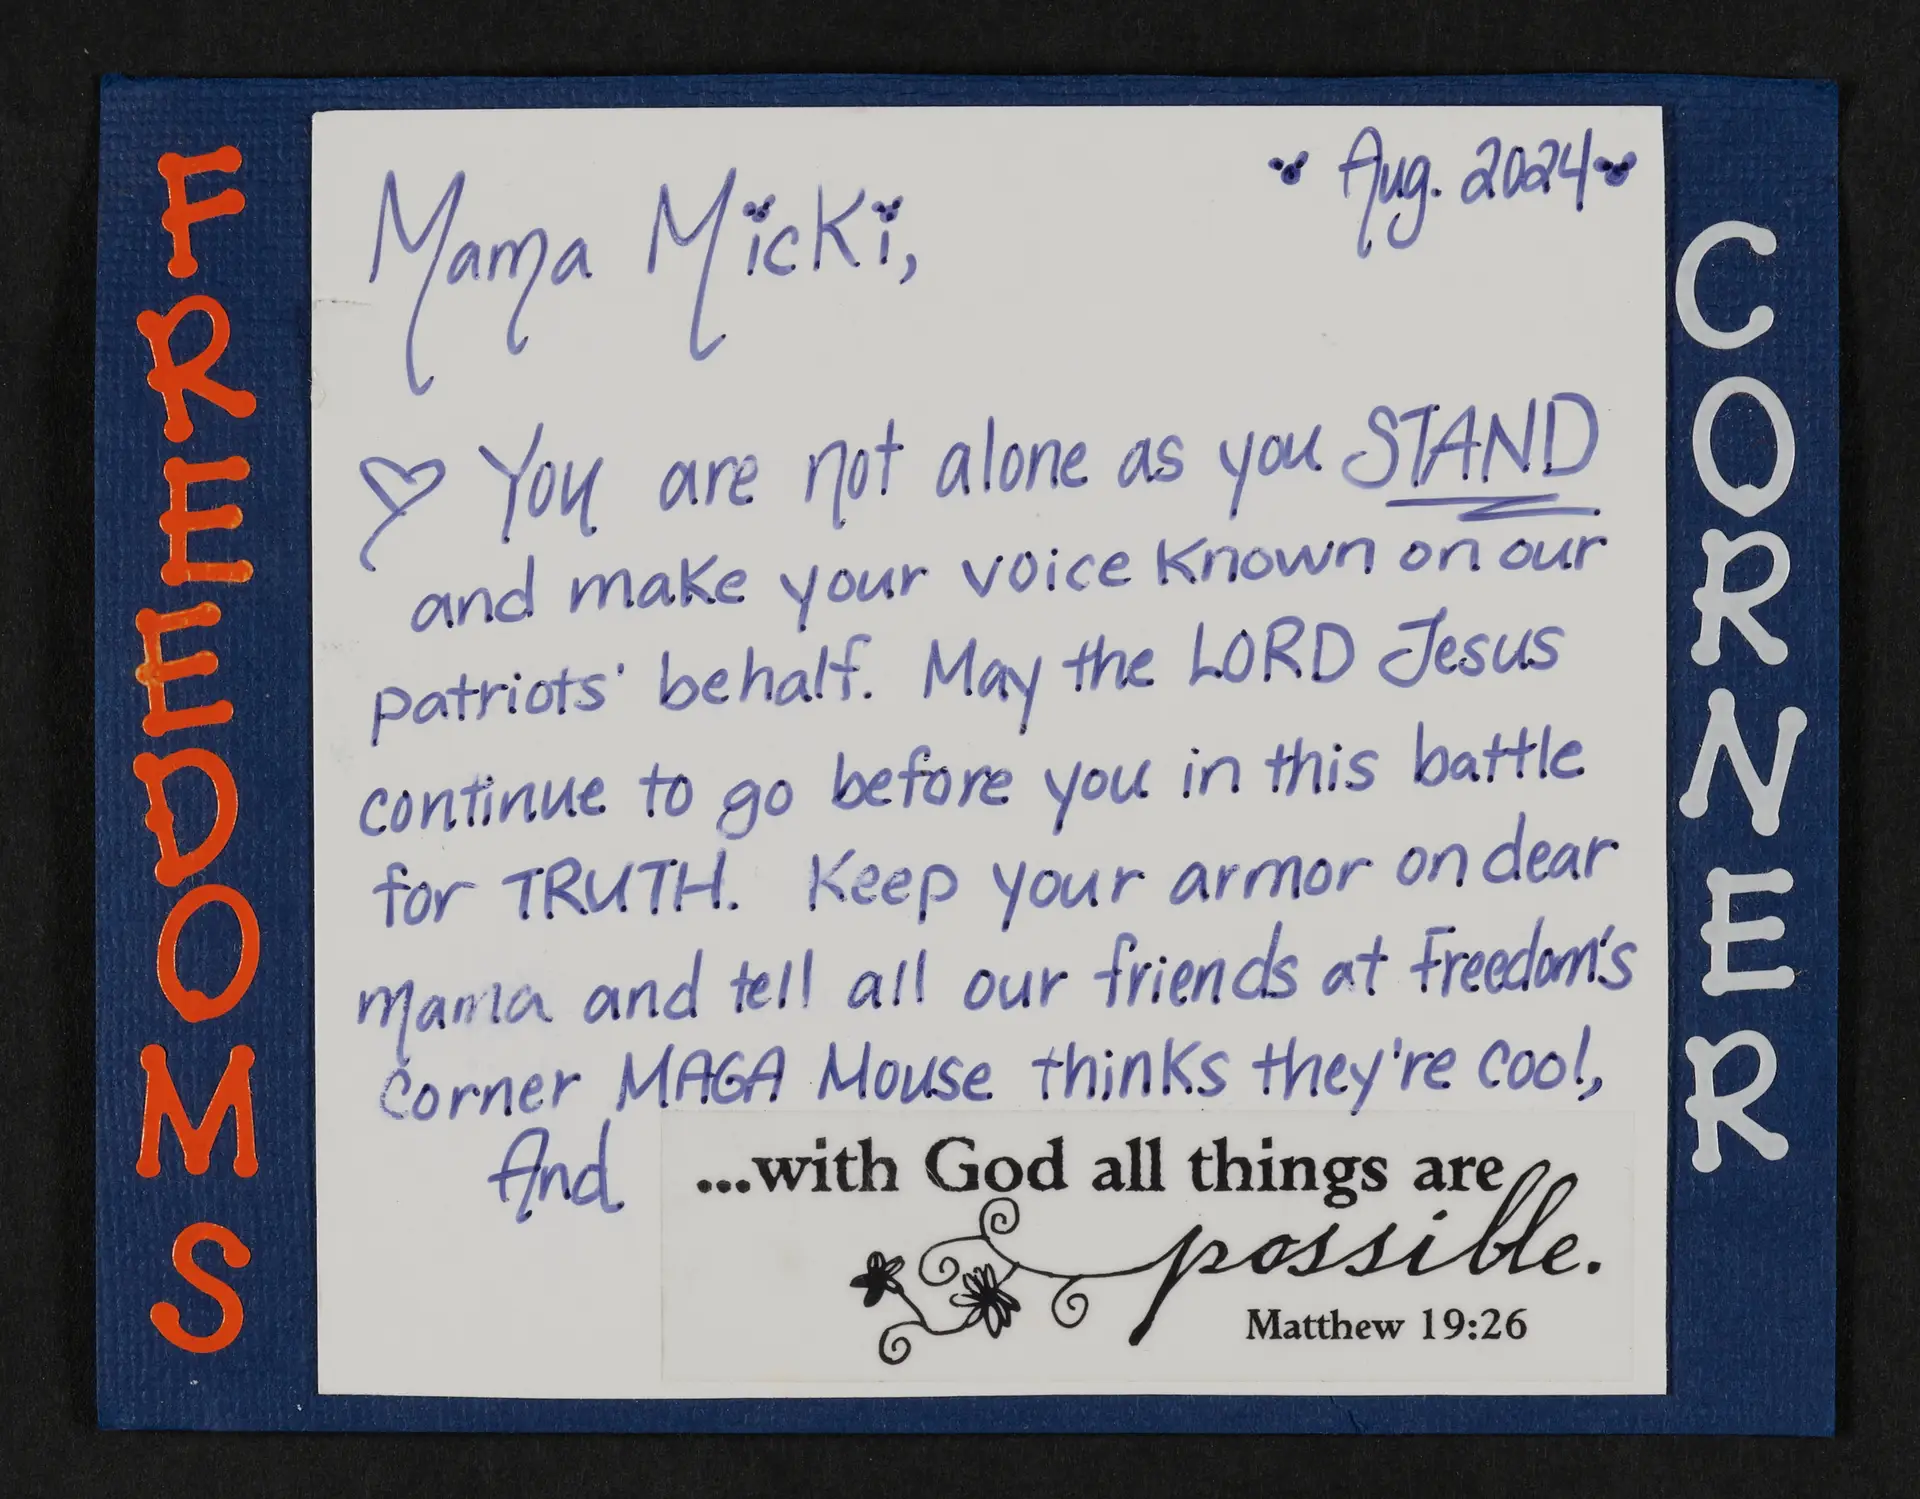 FREEDOMS
Aug. 2024
Mama Micki,
You are not alone as you STAND
and make your voice known on our
patriots' behalf. May the LORD Jesus
continue to go before you in this battle
for TRUTH. Keep your armor on dear
mama and tell all our friends at Freedom's
Corner MAGA Mouse thinks they're cool,
And
...with God all things are
possible.
Matthew 19:26
CORNER